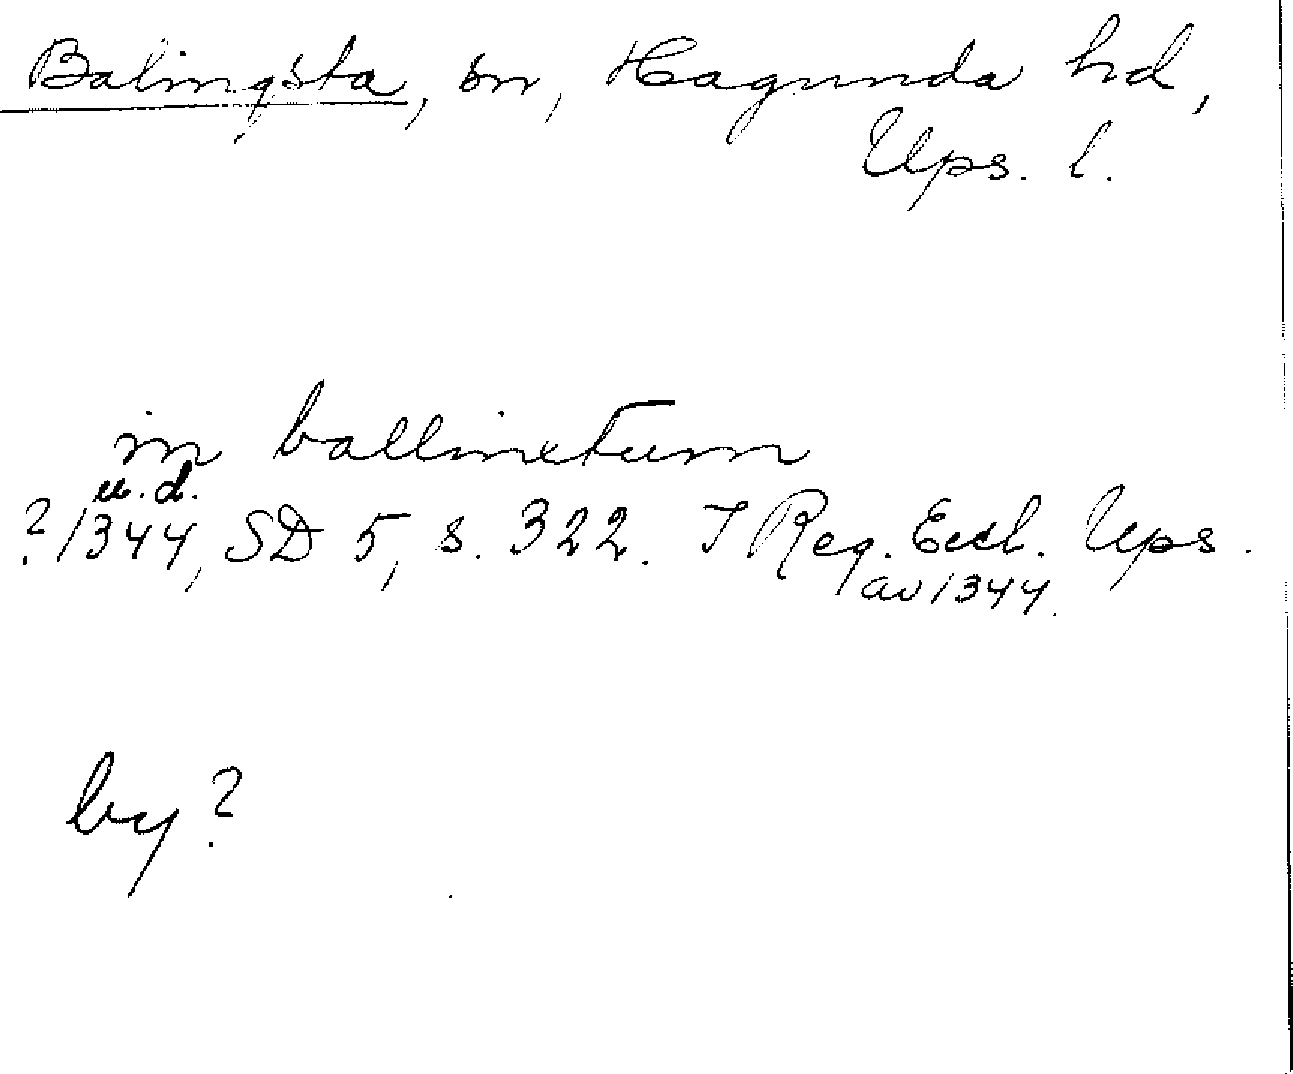 Balingsta, sn, Hagunda hd,
Ups. l.
in ballinxtum
u. d.
? 1344, SD 5, s. 322. I Reg. Eccl. Ups.
av 1344.
by?